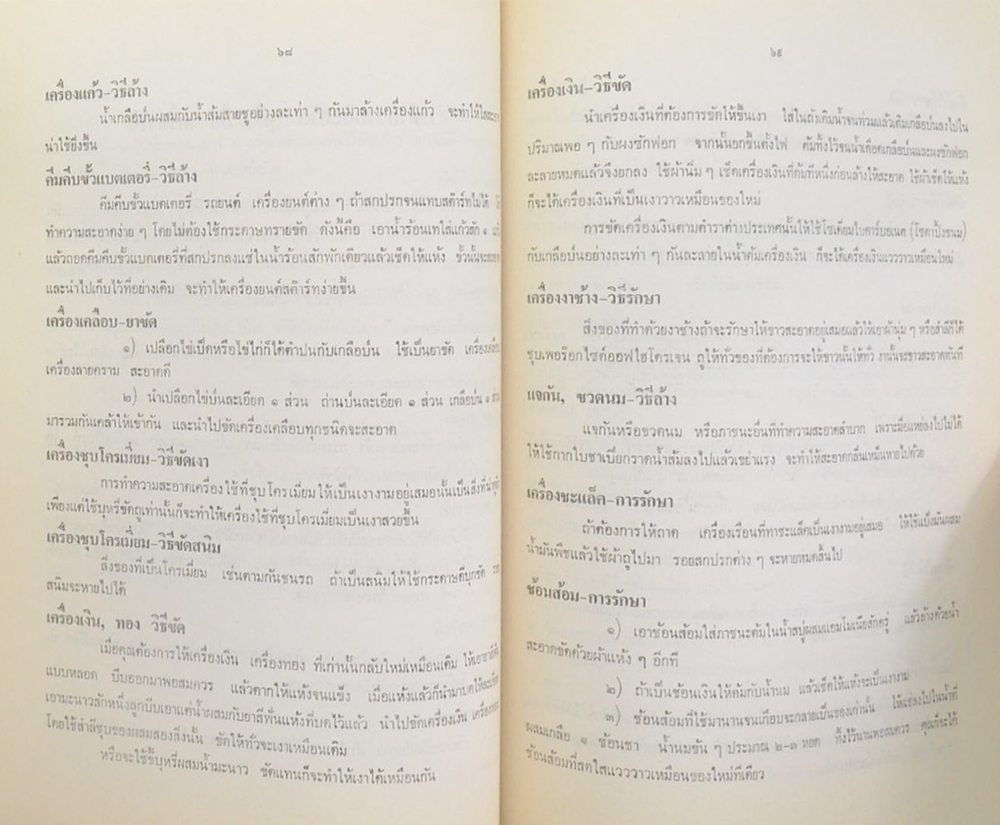 ๖๘
เครื่องแก้ว-วิธีล้าง
น้ำเกลือป่นผสมกับน้ำส้มสายชูอย่างละเท่า ๆ กันมาล้างเครื่องแก้ว จะทำให้ใสสะอาด
น่าใช้ยิ่งขึ้น
คีมคีบขั้วแบตเตอรี่-วิธีล้าง
คีมคีบขั้วแบตเตอรี่ รถยนต์ เครื่องยนต์ต่าง ๆ ถ้าสกปรกจนแทบสต๊าร์ทไม่ได้
ทำความสะอาดง่าย ๆ โดยไม่ต้องใช้กระดาษทรายขัด ดังนี้คือ เอาน้ำร้อนเทใส่แก้วสัก ๑
แล้วถอดคีมคีบขั้วแบตเตอรี่ที่สกปรกลงแช่ในน้ำร้อนสักพักเดียวแล้วเช็ดให้แห้ง ขั้วนั้นจะสะอาด
และนำไปเก็บไว้ที่อย่างเดิม จะทำให้เครื่องยนต์สต๊าร์ทง่ายขึ้น
เครื่องเคลือบ-ยาขัด
๑) เปลือกไข่เป็ดหรือไข่ไก่ก็ได้ตำปนกับเกลือป่น ใช้เป็นยาขัด เครื่องเคลือบ
เครื่องลายคราม สะอาดดี
๒) นำเปลือกไข่ป่นละเอียด ๑ ส่วน ถ่านป่นละเอียด ๑ ส่วน เกลือป่น ๑ ส่วน
มารวมกันเคล้าให้เข้ากัน และนำไปขัดเครื่องเคลือบทุกชนิดจะสะอาด
เครื่องชุบโครเมี่ยม-วิธีขัดเงา
การทำความสะอาดเครื่องใช้ที่ชุบโครเมี่ยมให้เป็นเงางามอยู่เสมอนั้นเป็นสิ่งที่
เพียงแต่ใช้บุหรี่ขัดถูเท่านั้นก็จะทำให้เครื่องใช้ที่ชุบโครเมี่ยมเป็นเงาสวยขึ้น
เครื่องชุบโครเมี่ยม-วิธีขัดสนิม
สิ่งของที่เป็นโครเมี่ยม เช่นตามกันชนรถ ถ้าเป็นสนิมให้ใช้กระดาษดีบุกขัด
สนิมจะหายไปได้
เครื่องเงิน, ทอง วิธีขัด
เมื่อคุณต้องการให้เครื่องเงิน เครื่องทอง ที่เก่านั้นกลับใหม่เหมือนเดิม ให้เอายาสีฟัน
แบบหลอด บีบออกมาพอสมควร แล้วตากให้แห้งจนแข็ง เมื่อแห้งแล้วก็นำมาบดให้ละเอียด
เอามะนาวสักหนึ่งลูกบีบเอาแต่น้ำผสมกับยาสีฟันแห้งที่บดไว้แล้ว นำไปขัดเครื่องเงิน เครื่องทอง
โดยใช้สำลีชุบของผสมสองสิ่งนั้น ขัดให้ทั่วจะเงาเหมือนเดิม
หรือจะใช้ขี้บุหรี่ผสมน้ำมะนาว ขัดแทนก็จะทำให้เงาได้เหมือนกัน
๖๙
เครื่องเงิน-วิธีขัด
นำเครื่องเงินที่ต้องการขัดให้ขึ้นเงา ใส่ในถังเติมน้ำจนท่วมแล้วเติมเกลือป่นลงไปใน
ปริมาณพอ ๆ กับผงซักฟอก จากนั้นยกขึ้นตั้งไฟ ต้มทิ้งไว้จนน้ำเดือดเกลือป่นและผงซักฟอก
ละลายหมดแล้วจึงยกลง ใช้ผ้านิ่ม ๆ เช็ดเครื่องเงินที่ต้มทีหนึ่งก่อนล้างให้สะอาด ใช้ผ้าเช็ดให้แห้ง
ก็จะได้เครื่องเงินที่เป็นเงาวาวเหมือนของใหม่
การขัดเครื่องเงินตามตำราต่างประเทศนั้นให้ใช้โซเดี่ยมไบคาร์บอเนต (โซดาปิ้งขนม)
กับเกลือป่นอย่างละเท่า ๆ กันละลายในน้ำต้มเครื่องเงิน ก็จะได้เครื่องเงินแวววาวเหมือนใหม่
เครื่องงาช้าง-วิธีรักษา
สิ่งของที่ทำด้วยงาช้างถ้าจะรักษาให้ขาวสะอาดอยู่เสมอแล้วให้เอาผ้านุ่ม ๆ หรือสำลีก็ได้
ชุบเพอร๊อกไซด์ออฟไฮโดรเจน ถูให้ทั่วของที่ต้องการจะให้ขาวนั้นให้ทั่ว งานั้นจะขาวสะอาดทันที
แจกัน, ขวดนม-วิธีล้าง
แจกันหรือขวดนม หรือภาชนะอื่นที่ทำความสะอาดลำบาก เพราะมือแหย่ลงไปไม่ได้
ให้ใช้กากใบชาเปียกราดน้ำส้มลงไปแล้วเขย่าแรง จะทำให้สะอาดกลิ่นเหม็นหายไปด้วย
เครื่องชะแล็ค-การรักษา
ถ้าต้องการให้ถาด เครื่องเรือนที่ทาชะแล็คเป็นเงางามอยู่เสมอ ให้ใช้แป้งมันผสม
น้ำมันพืชแล้วใช้ผ้าถูไปมา รอยสกปรกต่าง ๆ จะหายหมดสิ้นไป
ช้อนส้อม-การรักษา
๑) เอาช้อนส้อมใส่ภาชนะต้มในน้ำสบู่ผสมแอมโมเนียสักครู่ แล้วล้างด้วยน้ำ
สะอาดขัดด้วยผ้าแห้ง ๆ อีกที
๒) ถ้าเป็นช้อนเงินให้ต้มกับน้ำนม แล้วเช็ดให้แห้งจะเป็นเงางาม
๓) ช้อนส้อมที่ใช้มานานจนเกือบจะกลายเป็นของเก่านั้น ให้แช่ลงไปในน้ำที่
ผสมเกลือ ๑ ช้อนชา น้ำนมข้น ๆ ประมาณ ๒-๓ หยด ทิ้งไว้นานพอสมควร คุณก็จะได้
ช้อนส้อมที่สดใสแวววาวเหมือนของใหม่ทีเดียว